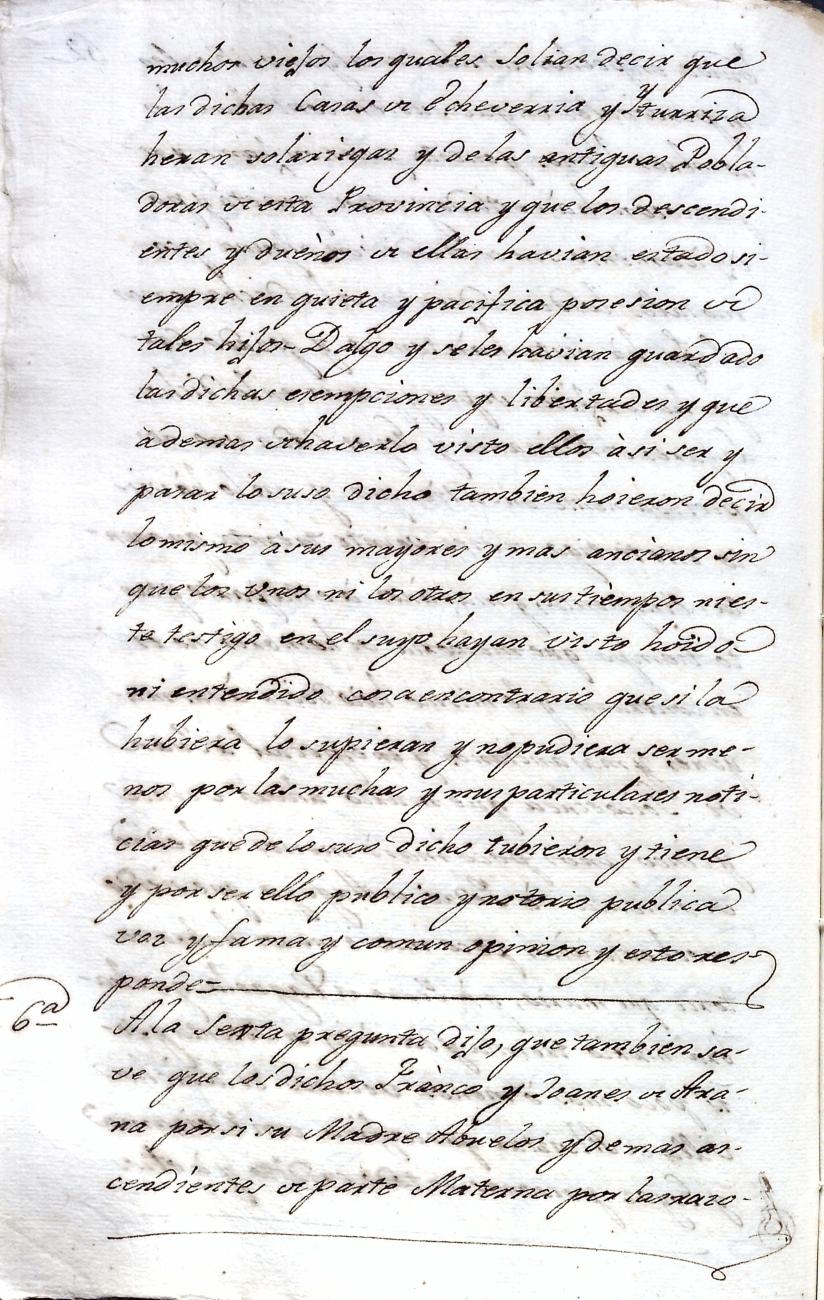 muchos viejos los quales solian decir que
las dichas Casas de Echeverria y Yturriza
heran solariegas y de las antiguas Pobla-
doras de esta Provincia y que los descendi-
entes y dueños de ellas havian estado si-
empre en quieta y pacifica posesion de
tales hijos-Dalgo y se les havian guardado
las dichas esempciones y libertades y que
ademas de haverlo visto ellos àsi ser y
pasar lo suso dicho tambien hoieron decir
lo mismo à sus mayores y mas ancianos sin
que los vnos ni los otros en sus tiempos ni es-
te testigo en el suyo hayan visto hoido
ni entendido cosa encontrario que si la
hubiera lo supieran y no pudiera ser me-
nos por las muchas y mui particulares noti-
cias que de lo suso dicho tubieron y tiene
y por ser ello publico y notorio publica
voz y fama y comun opinion y esto res-
ponde=
6ª
A la Sexta pregunta dijo, que tambien sa-
ve que los dichos Franco y Joanes de Ara-
na por si su Madre Abuelos y demas as-
cendientes de parte Materna por las razo-